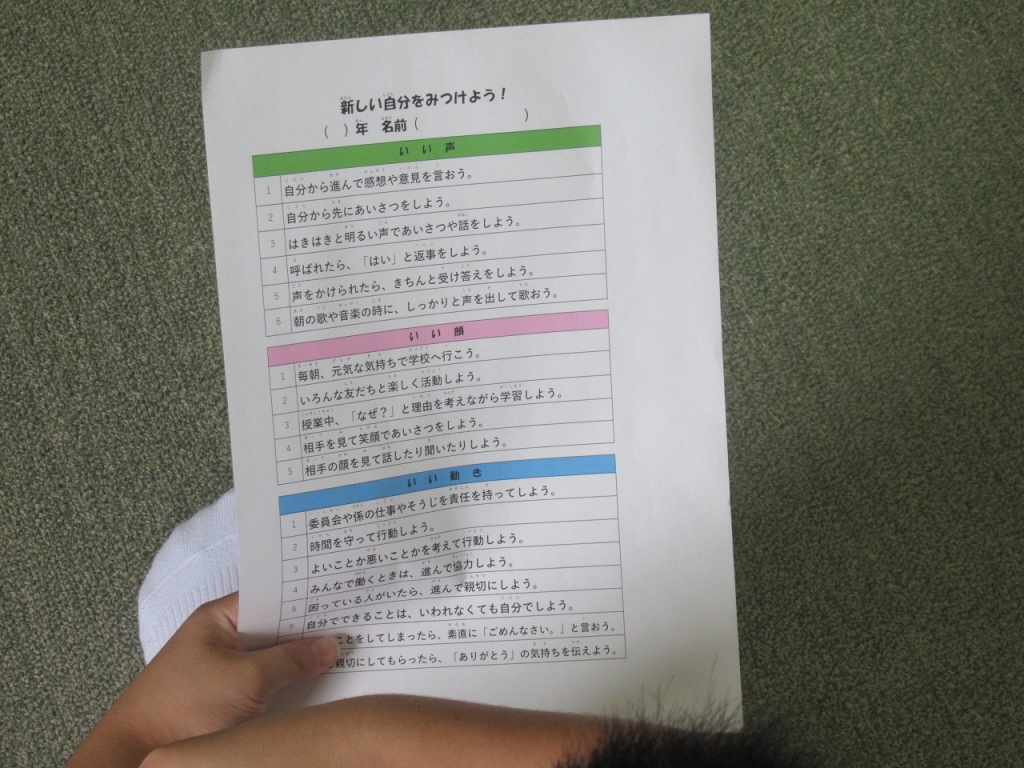 新しい自分をみつけよう！
( )年 名前( )
いい声
1 自分から進んで感想や意見を言おう。
2 自分から先にあいさつをしよう。
3 はきはきと明るい声であいさつや話をしよう。
4 呼ばれたら、「はい」と返事をしよう。
5 声をかけられたら、きちんと受け答えをしよう。
6 朝の歌や音楽の時に、しっかりと声を出して歌おう。
いい顔
1 毎朝、元気な気持ちで学校へ行こう。
2 いろんな友だちと楽しく活動しよう。
3 授業中、「なぜ？」と理由を考えながら学習しよう。
4 相手を見て笑顔であいさつをしよう。
5 相手の顔を見て話したり聞いたりしよう。
いい動き
1 委員会や係の仕事やそうじを責任を持ってしよう。
2 時間を守って行動しよう。
3 よいことか悪いことかを考えて行動しよう。
4 みんなで働くときは、進んで協力しよう。
5 困っている人がいたら、進んで親切にしよう。
6 自分でできることは、いわれなくても自分でしよう。
ことをしてしまったら、素直に「ごめんなさい。」と言おう。
親切にしてもらったら、「ありがとう」の気持ちを伝えよう。